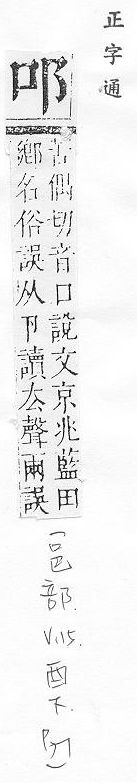 正字通
𨙫
苦偶切音口說文京兆藍田
鄉名俗誤从卩讀厺聲兩誤
(邑部. V.15. 酉下.